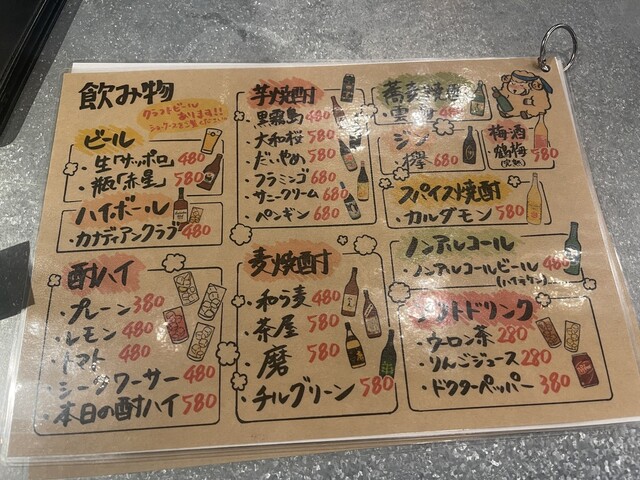 飲み物
クラフトビール
あります!!
ショーケースをご覧ください
ビール
・生「サッポロ」 480
・瓶「赤星」 580
ハイボール
・カナディアンクラブ 480
酎ハイ
・プレーン 380
・レモン 480
・トマト 480
・シークワーサー 480
・本日の酎ハイ 580
芋焼酎
・黒霧島 480
・大和桜 580
・だいやめ 580
・フラミンゴ 680
・サニークリーム 680
・ペンギン 680
麦焼酎
・和ら麦 480
・茶屋 580
・磨 580
・チルグリーン 580
蕎麦焼酎
・雲海 480
ジン
・欅 680
梅酒
鶴梅
(完熟)
580
スパイス焼酎
・カルダモン 580
ノンアルコール
・ノンアルコールビール 480
ソフトドリンク
・ウーロン茶 280
・りんごジュース 280
・ドクターペッパー 380